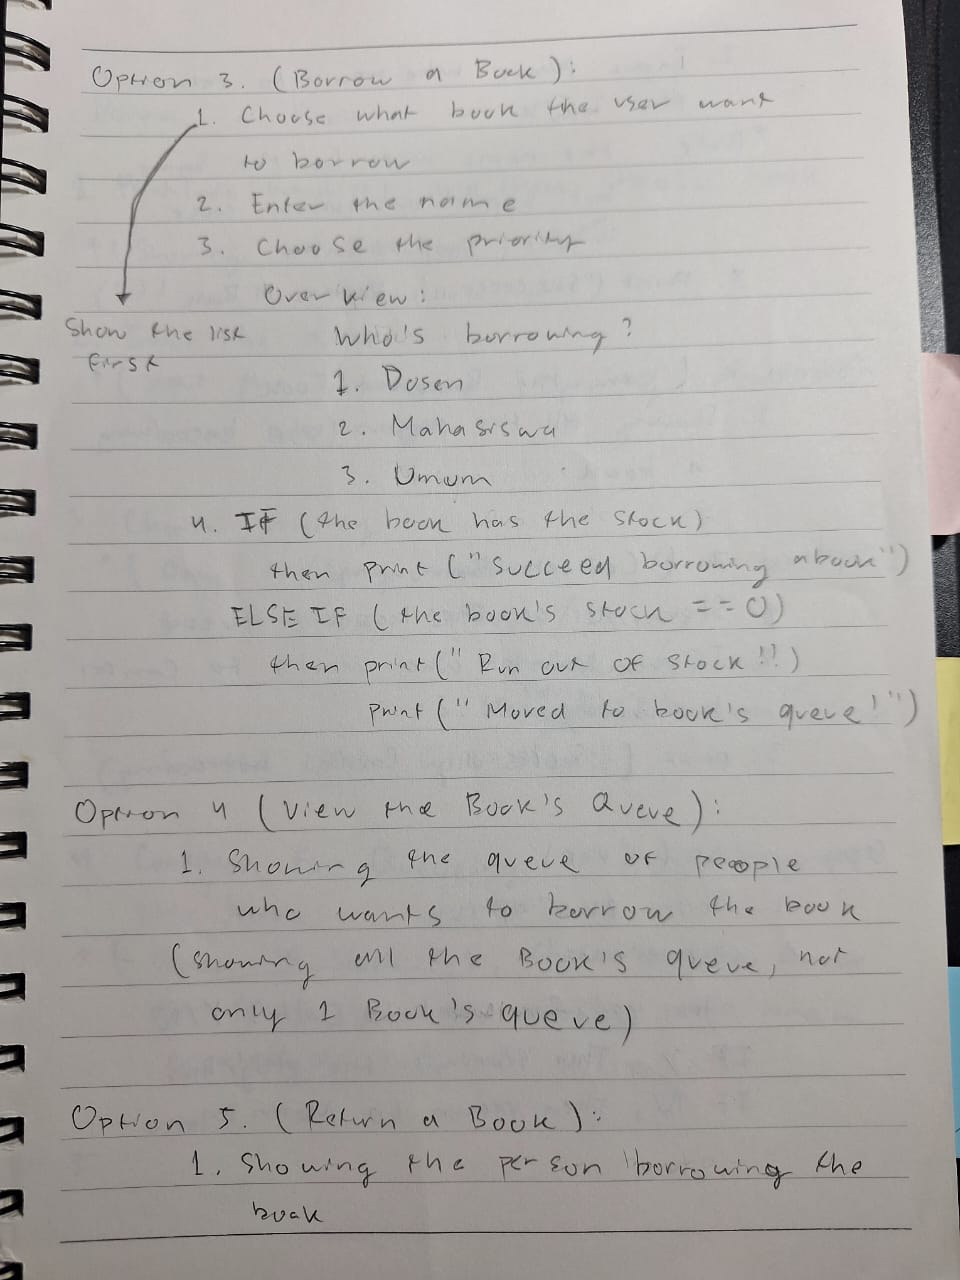 Option 3. (Borrow a Book):
1. Choose what book the user want
to borrow
2. Enter the name
3. Choose the priority
Overview:
Show the list
first
Who's borrowing?
1. Dosen
2. Mahasiswa
3. Umum
4. IF (the book has the stock)
then print ("Succeed borrowing a book")
ELSE IF (the book's stock == 0)
then print (" Run out OF stock!!)
print (" Moved to book's queue!")
Option 4 (View the Book's Queue):
1. Showing the queue OF people
who wants to borrow the book
(showing all the Book's queue, not
only 1 Book's queue)
Option 5. (Return a Book):
1. Showing the person borrowing the
book